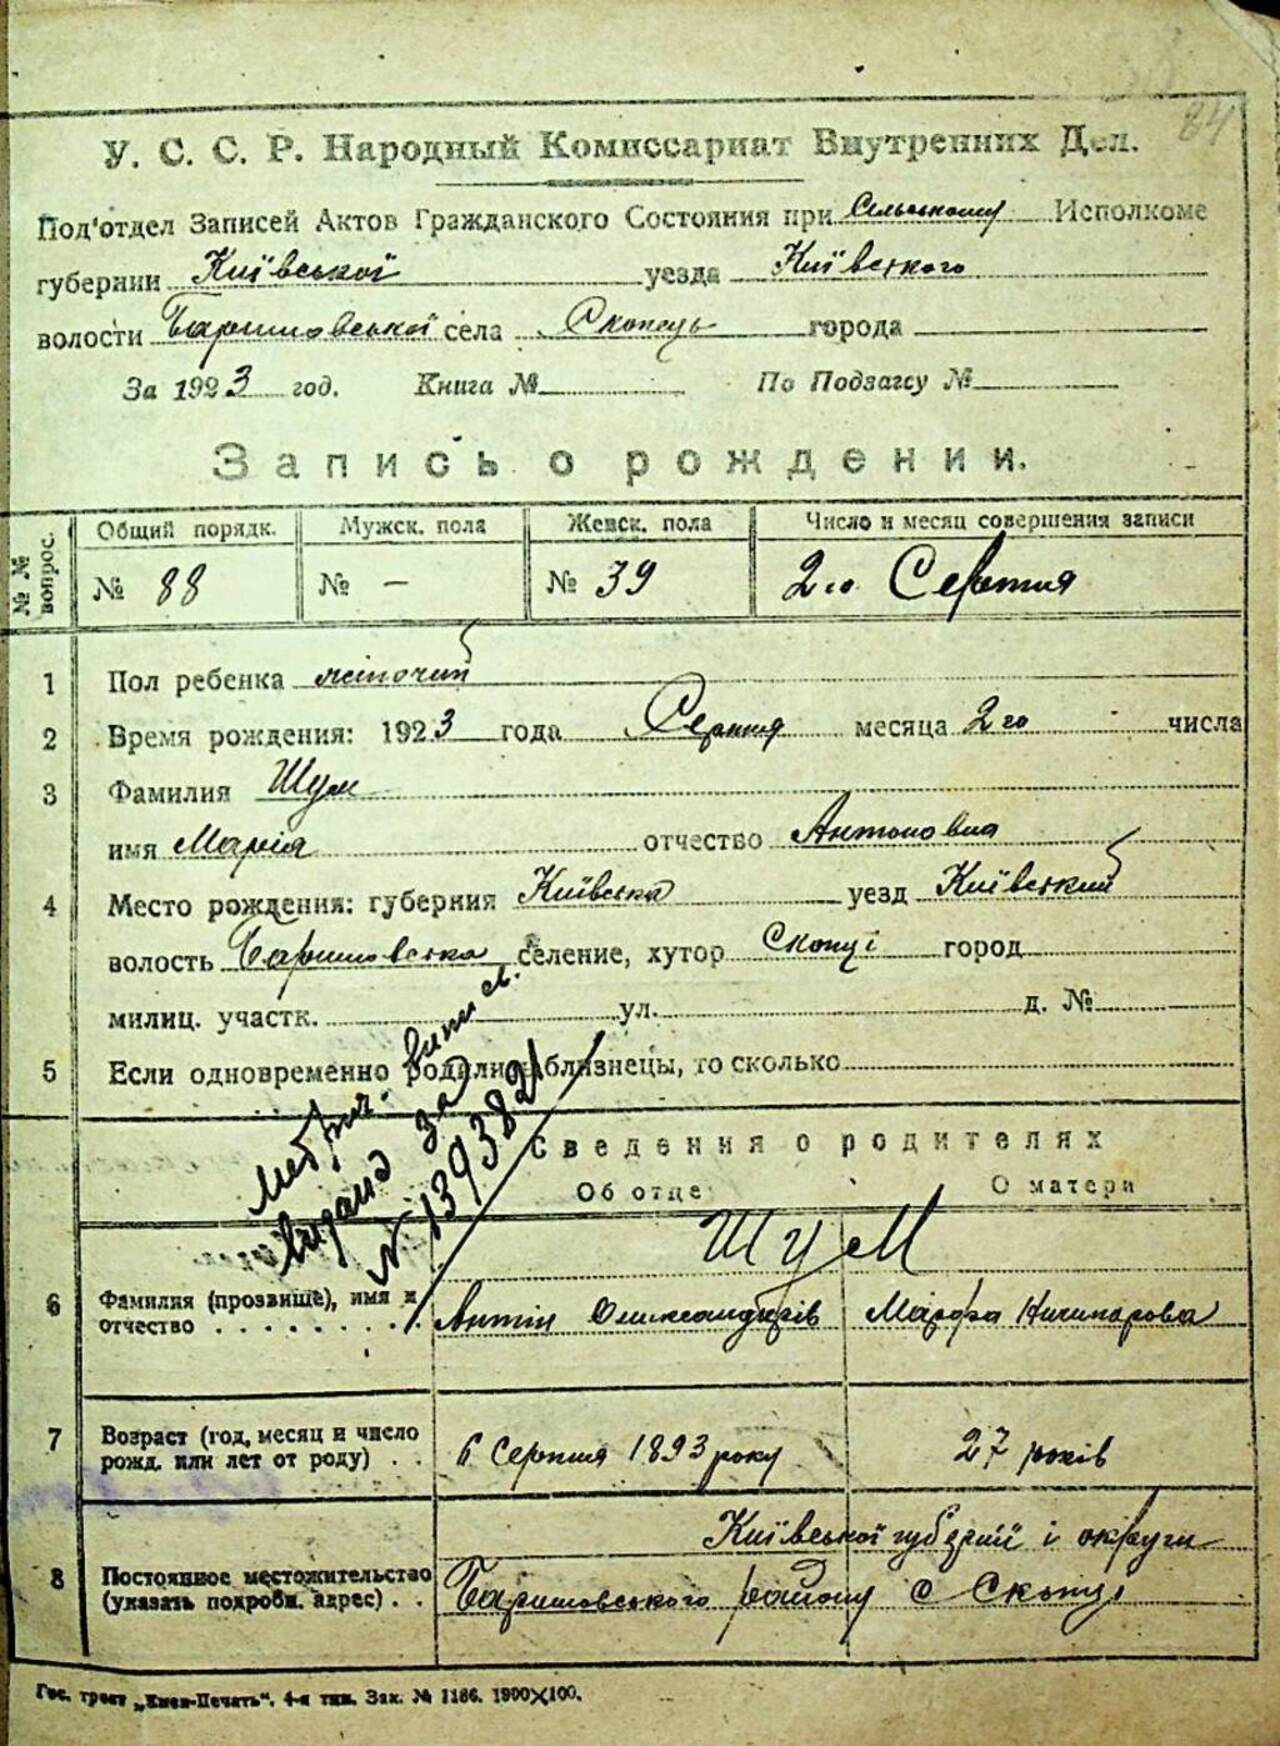 84
У. С. С. Р. Народный Комиссариат Внутренних Дел.
Под'отдел Записей Актов Гражданского Состояния при Сельському Исполкоме
губернии Київської уезда Київського
волости Баришовської села Скопець города
За 1923 год. Книга № По Подзагсу №
Запись о рождении.
№№ вопрос. Общий порядк. Мужск. пола Женск. пола Число и месяц совершения записи
№ 88 № — № 39 2го Серпня
1 Пол ребенка жіночий
2 Время рождения: 1923 года Серпня месяца 2го числа
3 Фамилия Шум
имя Марія отчество Антоновна
4 Место рождения: губерния Київська уезд Київський
волость Баришовська селение, хутор Скопці город
милиц. участк. ул. д. №
5 Если одновременно родились близнецы, то сколько
Метрич. випис.
видано за
№ 139382
Сведения о родителях
Об отце О матери
Шум
6 Фамилия (прозвище), имя и отчество Антін Олександрів Марфа Ничипорова
7 Возраст (год, месяц и число рожд. или лет от роду) 6 Серпня 1893 року 27 років
Київської губерніи і округи
8 Постоянное местожительство (указать подробн. адрес) Баришовського району с Скопці
Гос. трест „Киев-Печать“. 4-я тип. Зак. № 1186. 1900×100.